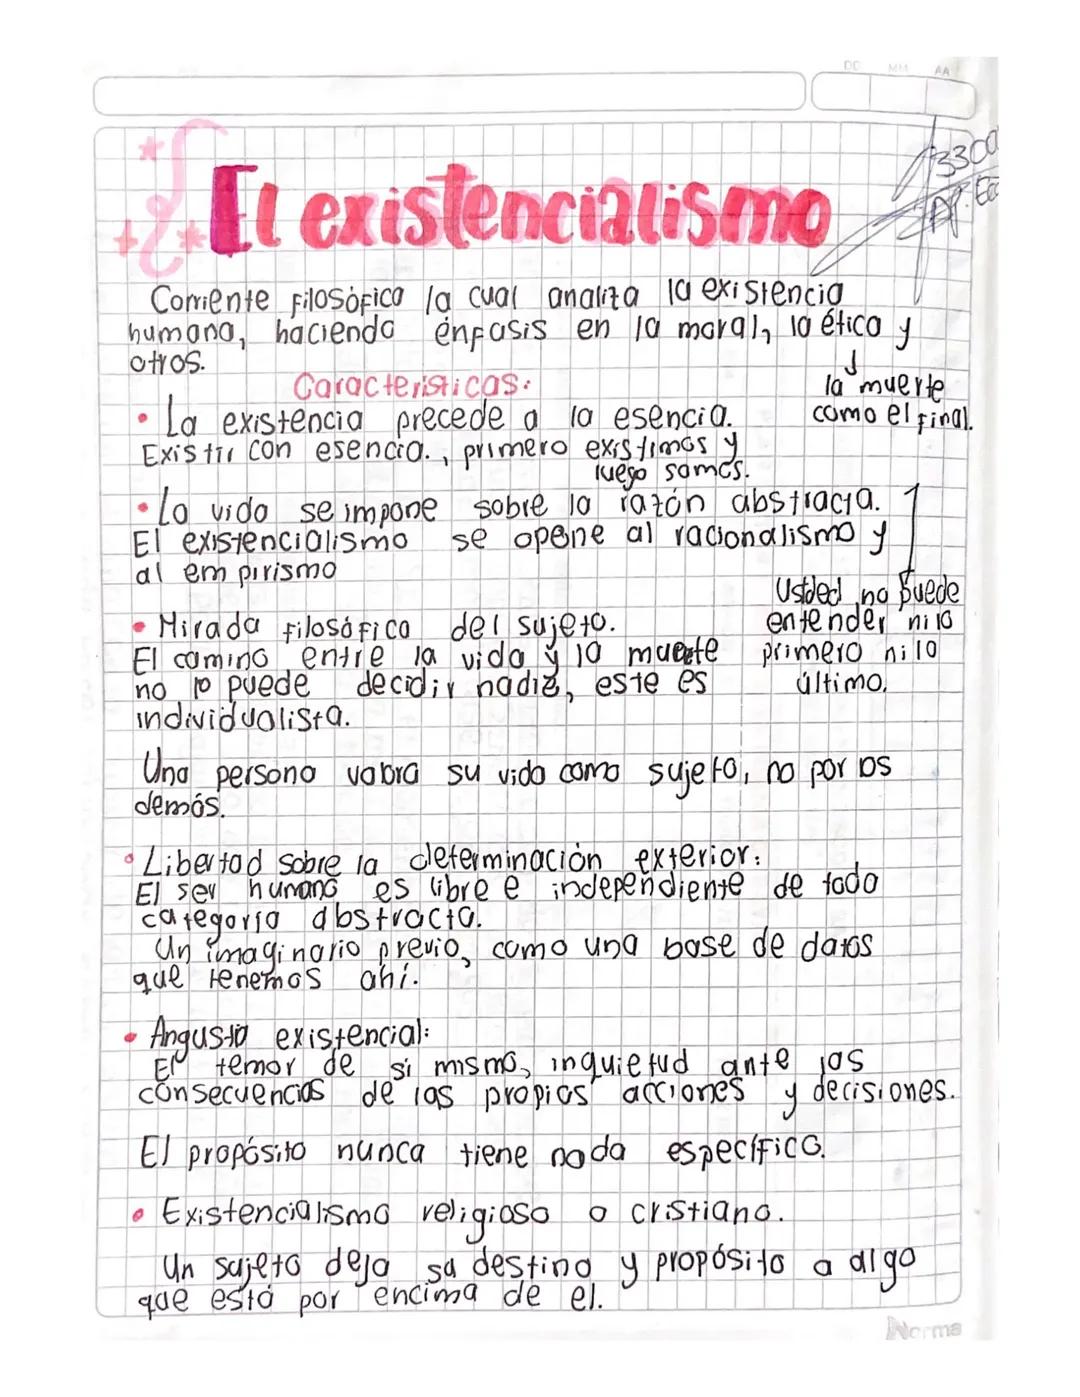 DD MM AA
El existencialismo
Corriente Filosófica la cual analiza la existencia
humana, haciendo énfasis en la moral, la ética y
otros.
la muerte
como el final.
Características:
• La existencia precede a la esencia.
Existir con esencia., primero existimos y
luego somos.
• La vida se impone sobre la razón abstracta.
El existencialismo se opone al racionalismo y
al empirismo
Usted no puede
entender ni lo
primero ni lo
último.
• Mirada filosófica del sujeto.
El camino entre la vida y la muerte
no lo puede decidir nadie, este es
individualista.
Una persona valora su vida como sujeto, no por los
demás.
• Libertad sobre la determinación exterior:
El ser humano es libre e independiente de toda
categoría abstracta.
Un imaginario previo, como una base de datos
que tenemos ahí.
• Angustia existencial:
El temor de si mismo, inquietud ante las
consecuencias de las propias acciones y decisiones.
El propósito nunca tiene nada específico.
• Existencialismo religioso o cristiano.
Un sujeto deja su destino y propósito a algo
que está por encima de el.
Norma